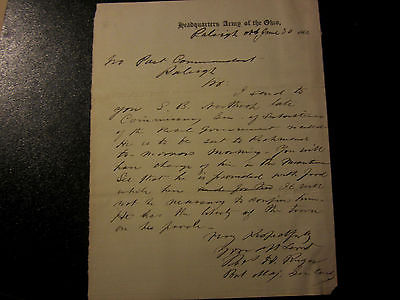 Headquarters Army of the Ohio,
Raleigh NC June 30 186
To Post Commandant
Raleigh
NC.
I send to
you S. B. Northrop late
Commissary Gen. of Subsistence
of the Rebel Government
He is to be sent to Richmond
to-morrow Morning. You will
have charge of him in the Meantime
See that he is provided with food
while here It will
not be necessary to confine him.
He has the liberty of the town
on his parole.
Very Respectfully
Your obt Servt
Thos H. Ruger
Bvt Maj. Gen Comdg